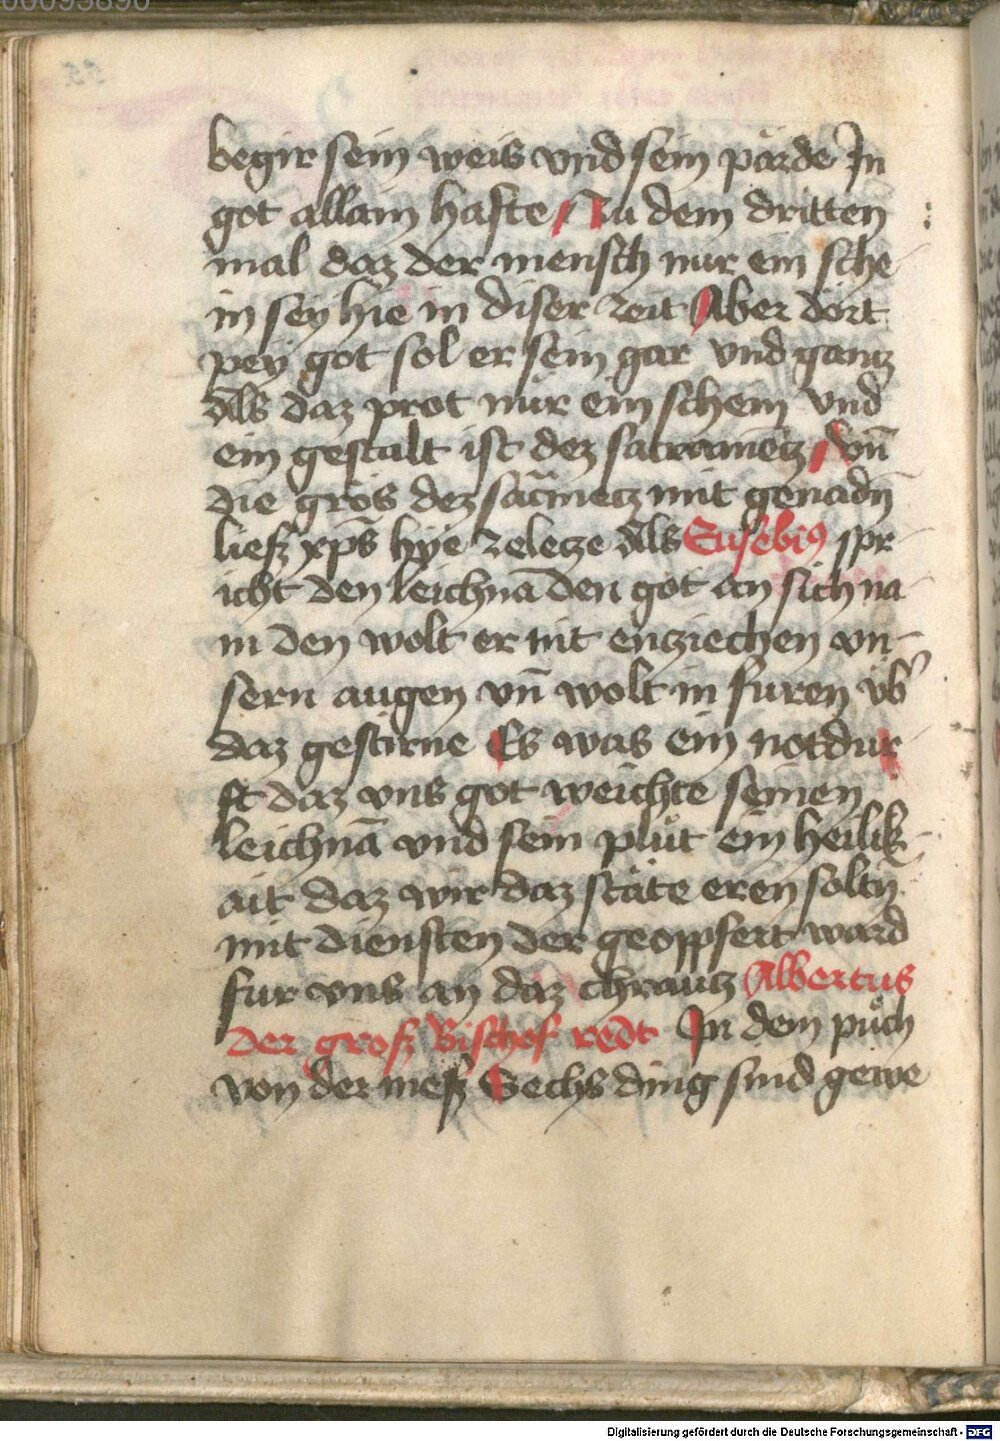 00095890
begir sein weis vnd sein pärde In
got allain hafte / Zu dem dritten
mal daz der mensch nur ein sche
in sey hie in diser zeit Aber dort
pey got sol er sein gar vnd gantz
Als daz prot nür ein schein vnd
ein gestalt ist dez sacramētz / vn̄
die grös dez sac̄metz mit genadn̄
liesz xp̄s hÿe zeletze Als Eusebiꝰ spr
icht den leichnā den got an sich na
m den wolt er nit enziechen vn-
sern augen vn̄ wolt in furen vb̓
daz gestirne Es was ein notdur
ft daz vns got weichte seinen
leichnā vnd sein plůt ein heilik
ait daz wir daz stäte eren soltn̄
mit diensten der geoppfert ward
fur vns an daz chräutz Albertus
der grosz Bischof redt In dem půch
von der mesz Sechs ding sind gewe
Digitalisierung gefördert durch die Deutsche Forschungsgemeinschaft - DFG